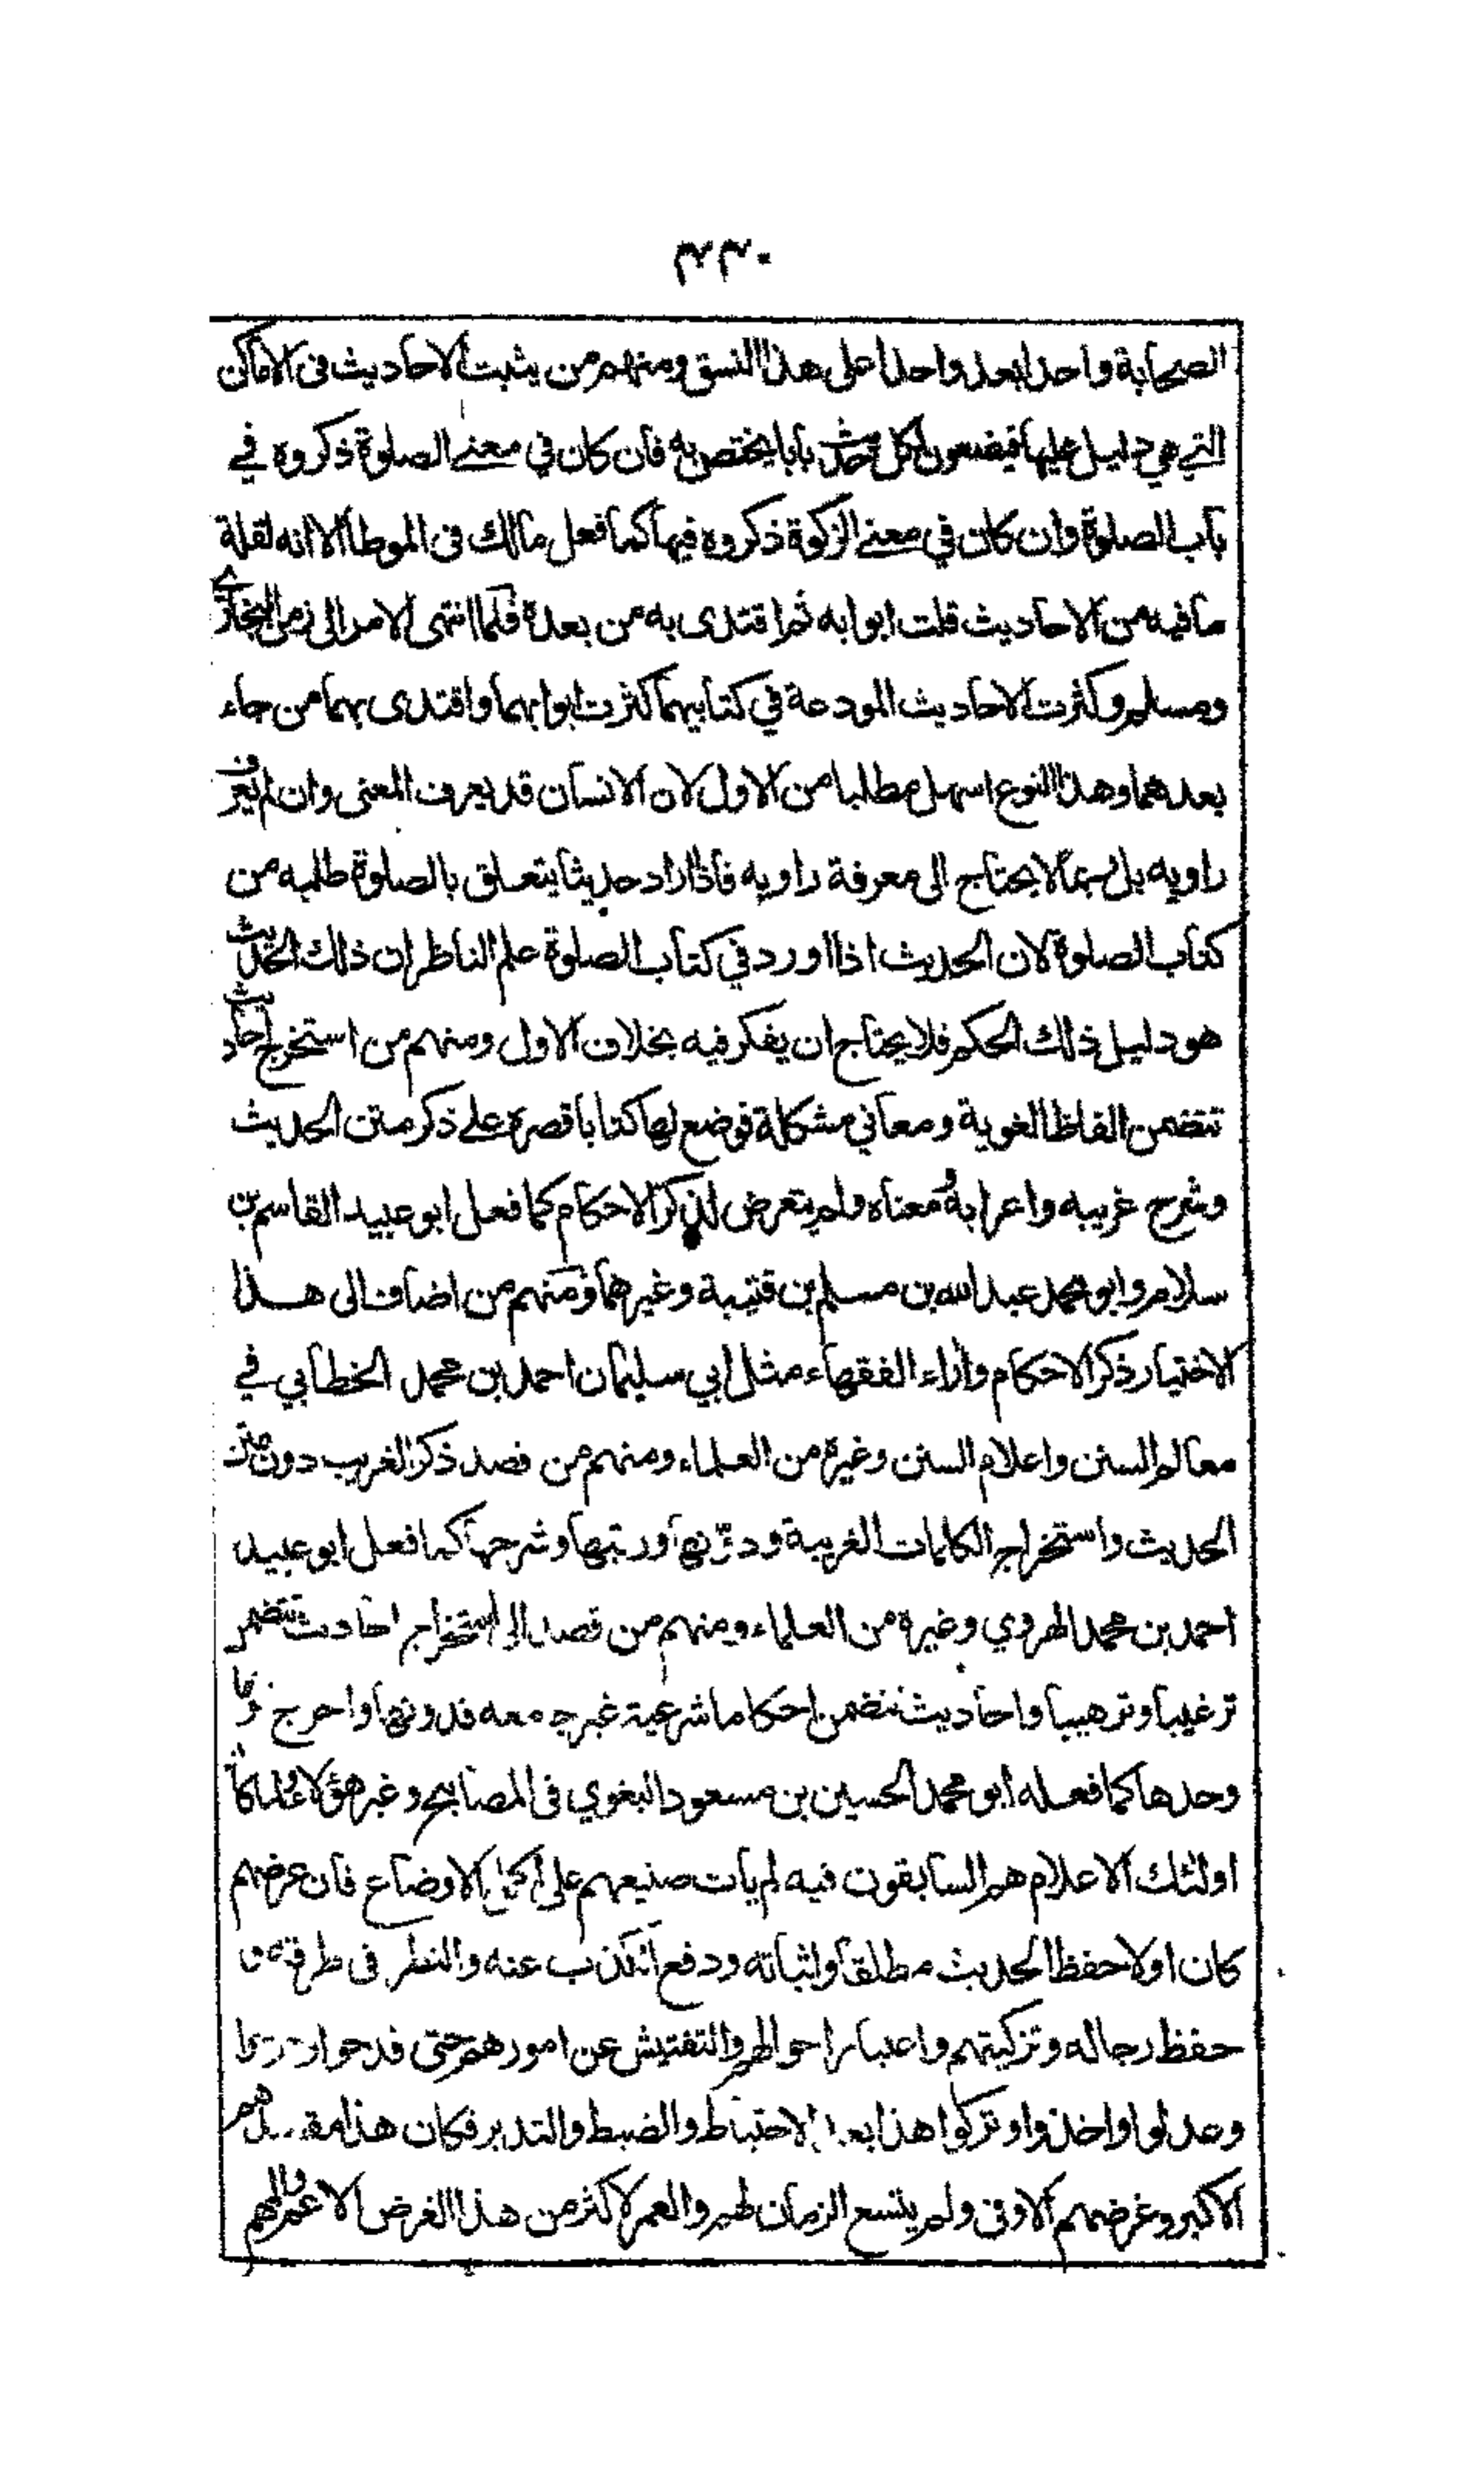 ۲۳۰
الصحابة واحدا بعد واحد على هذا النسق ومنهم من يثبت الاحاديث فى الاماكن
التي هي دليل عليها فيضعون لكل حديث بابا يختص به فان كان في معنے الصلوة ذكروه في
باب الصلوة وان كان في معنے الزكوة ذكروه فيها كما فعل مالك فى الموطا الا انه لقلة
ما فيه من الاحاديث قلت ابوابه ثم اقتدى به من بعدة فلما انتهى الامر الى زمن البخارے
ومسلم وكثرت الاحاديث المودعة في كتابيهما كثرت ابوابهما واقتدى بهما من جاء
بعدهما وهذا النوع اسهل مطلبا من الاول لان الانسان قد يعرف المعنى وان لم يعرف
راويه بل ربما لا يحتاج الى معرفة راويه فاذا اراد حديثا يتعلق بالصلوة طلبه من
كتاب الصلوة لان الحديث اذا اورد في كتاب الصلوة علم الناظر ان ذلك الحديث
هو دليل ذلك الحكم فلا يحتاج ان يفكر فيه بخلاف الاول ومنهم من استخرج احاديث
تتضمن الفاظا لغوية ومعاني مشكلة فوضع لها كتابا قصره على ذكر متن الحديث
وشرح غريبه واعرابه ومعناه ولم يتعرض لذكر الاحكام كما فعل ابو عبيد القاسم بن
سلام وابو محمد عبد الله بن مسلم بن قتيبة وغيرهما ومنهم من اضاف الى هذا
الاختيار ذكر الاحكام واراء الفقهاء مثل ابي سليمان احمد بن محمد الخطابي في
معالم السنن واعلام السنن وغيره من العلماء ومنهم من قصد ذكر الغريب دون متن
الحديث واستخراج الكلمات الغريبة ودونها ورتبها وشرحها كما فعل ابو عبيد
احمد بن محمد الهروي وغيرة من العلماء ومنهم من قصد الى استخراج احاديث تتضمن
ترغيبا وترهيبا واحاديث تتضمن احكاما شرعية غير جامعه فدونها واخرج
وحدها كما فعله ابو محمد الحسين بن مسعود البغوي فى المصابيح وغير هؤلاء ولما كان
اولئك الاعلام هم السابقون فيه لم يات صنيعهم على اكمل الاوضاع فان غرضهم
كان اولا حفظ الحديث مطلقا واثباته ودفع الكذب عنه والنظر فى طرقه و
حفظ رجاله وتزكيتهم واعتبار احوالهم والتفتيش عن امورهم حتى قدحوا
وعدلوا واخذوا وتركوا هذا بعد الاحتياط والضبط والتدبر فكان هذا مقصدهم
الاكبر وغرضهم الاوفى ولم يتسع الزمان لهم والعمر لاكثر من هذا الغرض الاعم والمهم